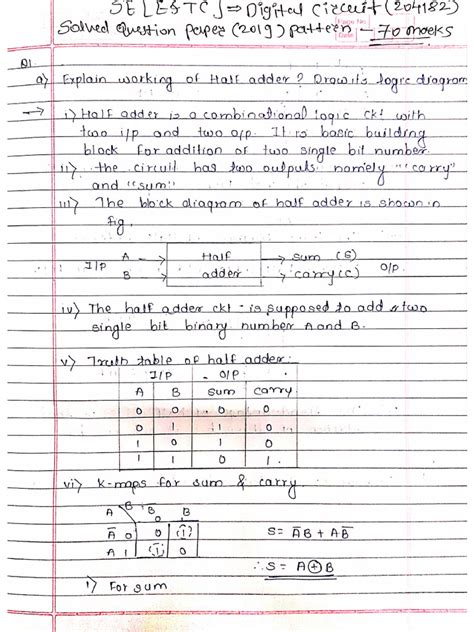 SE [E&TC] ⇒ Digital Circuit (204182)
Solved Question Paper (2019) pattern - 70 marks
Page No.
Date
Q1
a) Explain working of Half adder? Draw its logic diagram
→ i) Half adder is a combinational logic ckt with
two i/p and two o/p. It is basic building
block for addition of two single bit number.
ii) the circuit has two outputs namely "carry"
and "sum"
iii) The block diagram of half adder is shown in
fig.
I/P A → B → Half adder → sum (S) → carry (C) O/P
iv) The half adder ckt is supposed to add two
single bit binary number A and B.
v) Truth table of half adder:
I/P O/P
A B sum carry
0 0 0 0
0 1 1 0
1 0 1 0
1 1 0 1
vi) K-maps for sum & carry
A B B̅ B
A̅ 0 0 1 S = A̅B + AB̅
A 1 1 0 ∴ S = A ⊕ B
1) For sum